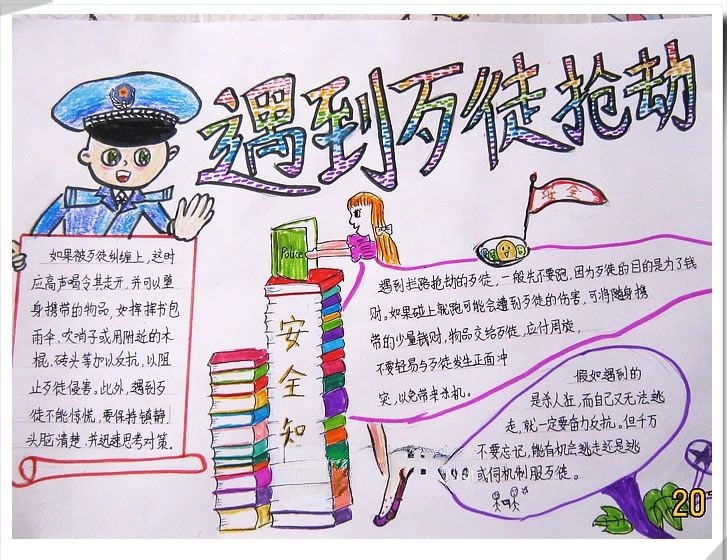 遇到歹徒抢劫
安全
Police
如果被歹徒纠缠上,这时
应高声喝令其走开,并可以随
身携带的物品,如挥挥书包
雨伞、吹哨子或用附近的木
棍、砖头等加以反抗,以阻
止歹徒侵害。此外,遇到歹
徒不能惊慌,要保持镇静
头脑清楚,并迅速思考对策.
安全知
遇到拦路抢劫的歹徒,一般先不要跑,因为歹徒的目的是为了钱
财。如果碰上就跑可能会遭到歹徒的伤害,可将随身携
带的少量钱财,物品交给歹徒,应付周旋,
不要轻易与歹徒发生正面冲
突,以免带来杀机。
假如遇到的
是杀人狂,而自己又无法逃
走,就一定要奋力反抗。但千万
不要忘记,能有机会逃走还是逃
或伺机制服歹徒。
20